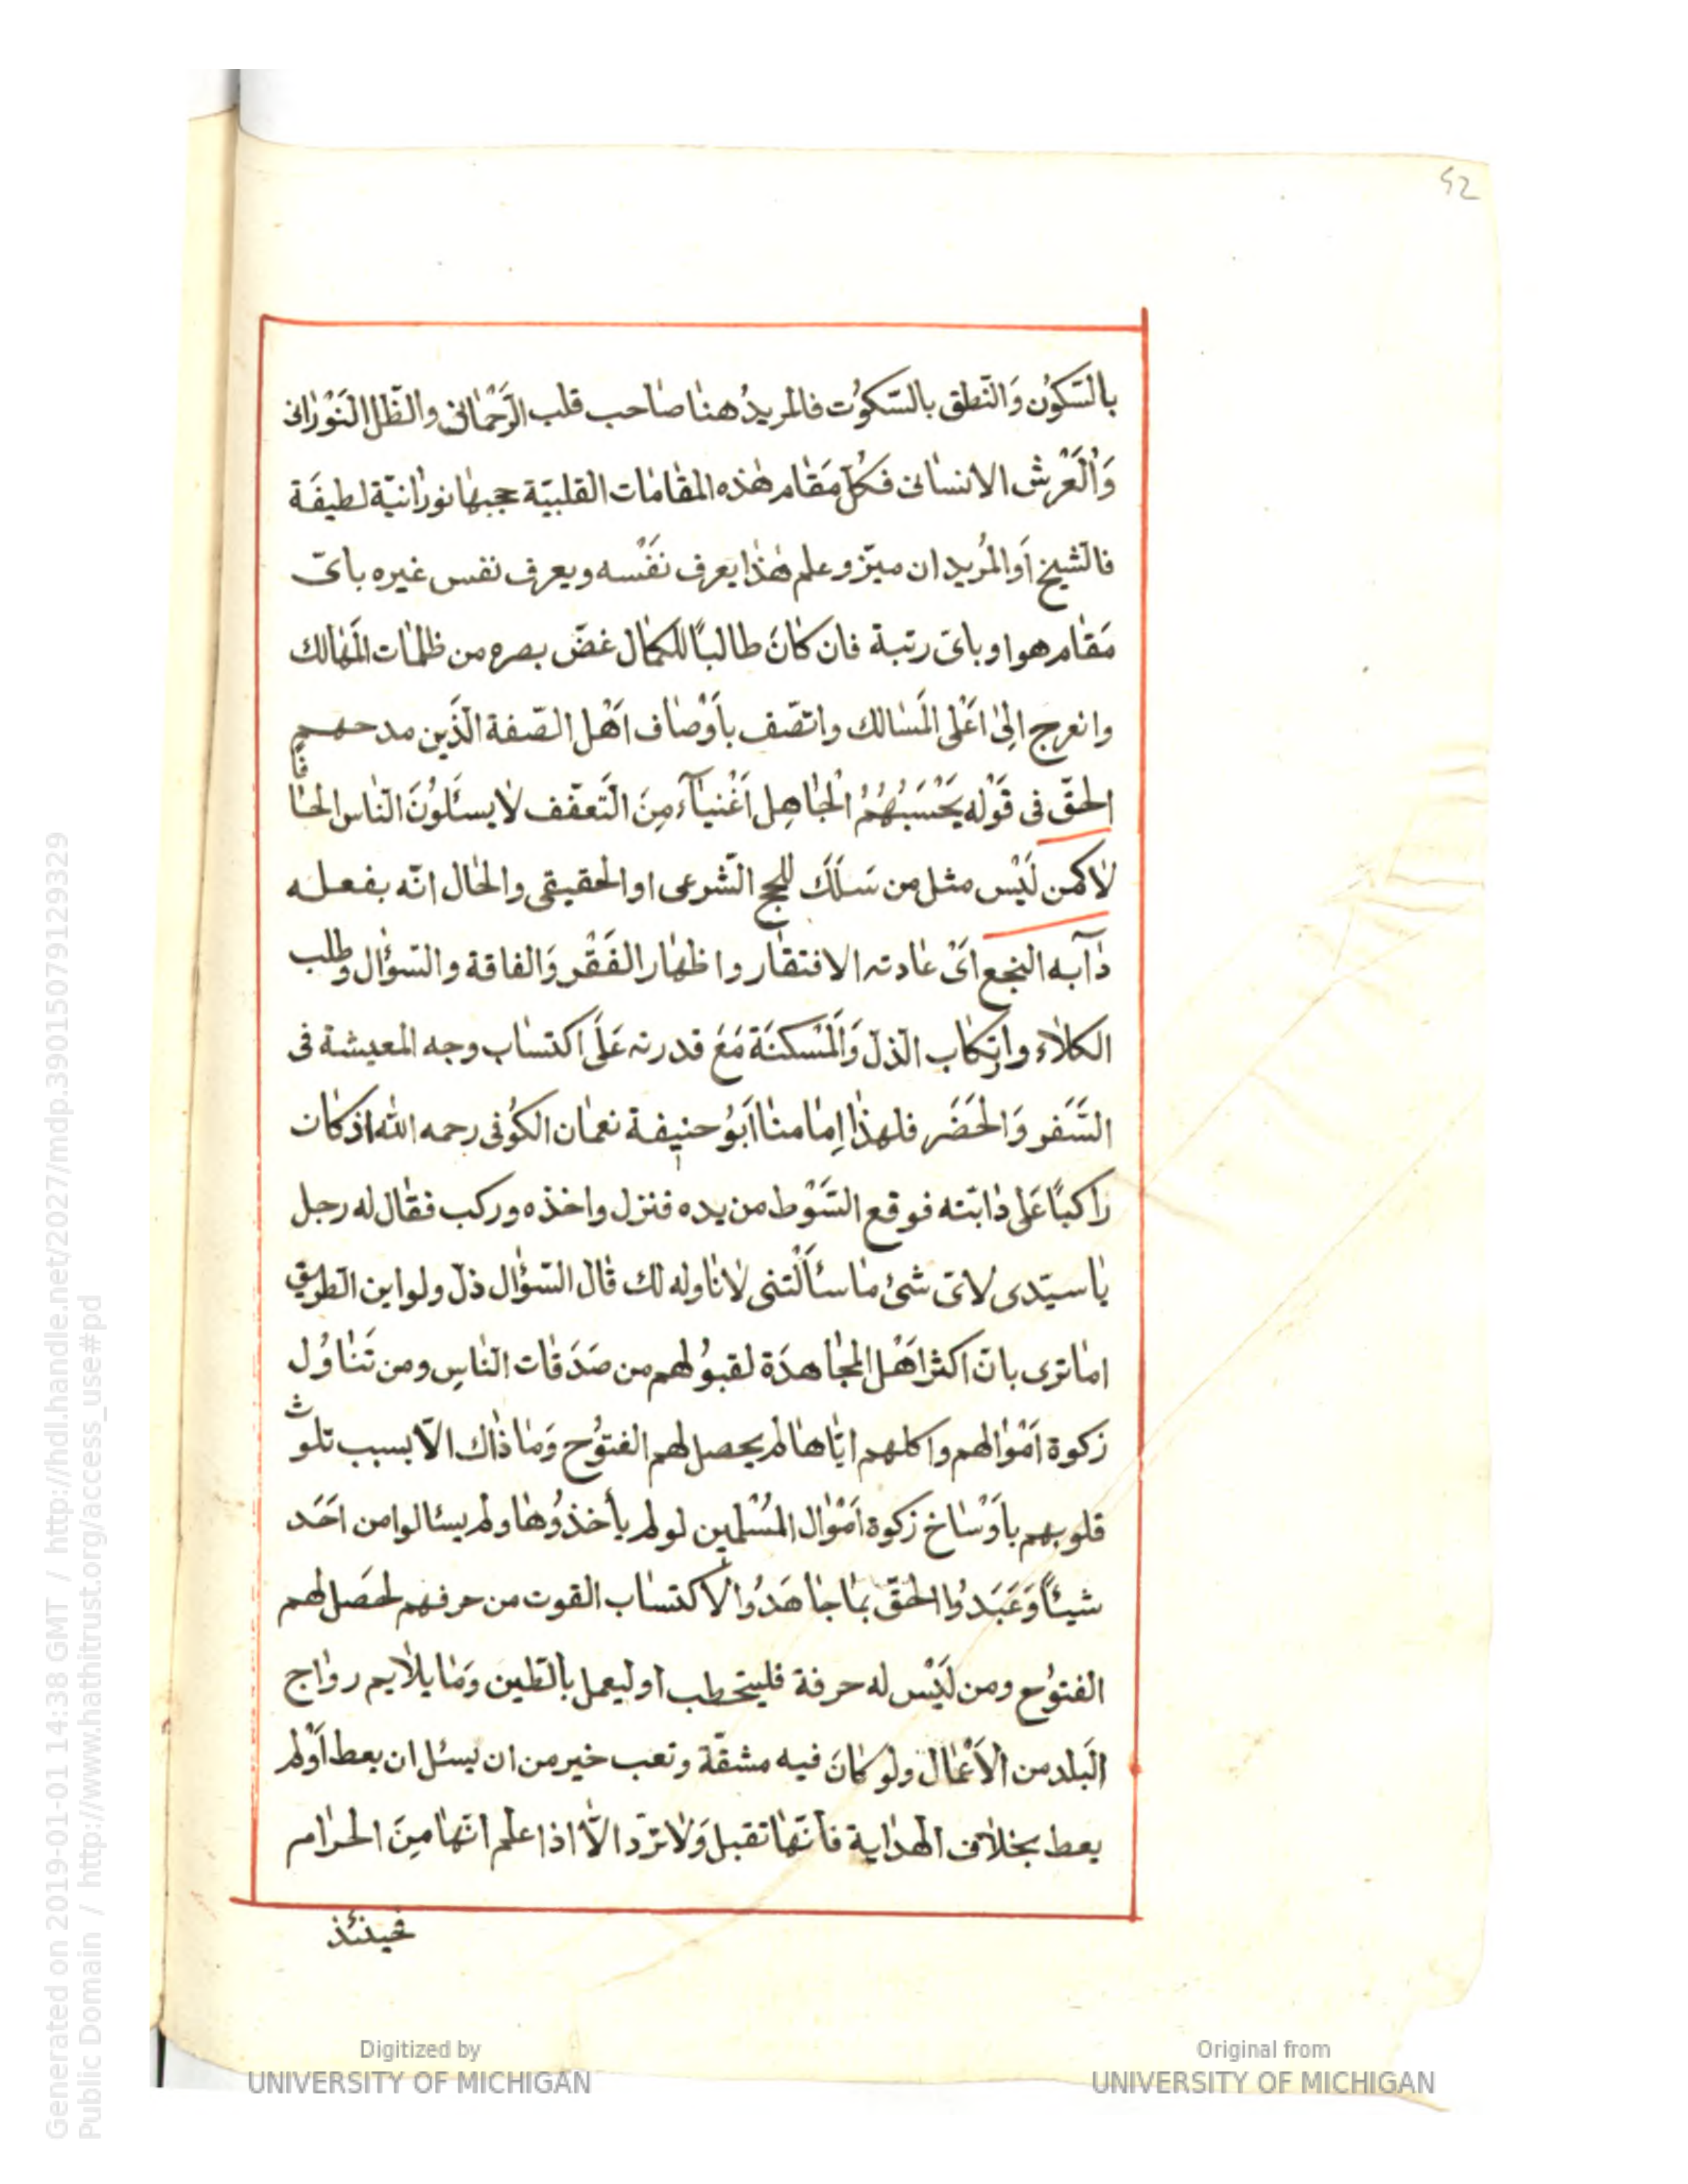 52
بالسّكوُن وَالنّطق بالسّكوُت فالمريدُ هنا صاحب قلب الرّحمٰانى والظّل النوْرانى
وَالْعَرْش الانسانى فكلّ مَقام هٰذه المقامات القلبيّة حجبها نورانيّة لطيفَة
فالشيخ اَوالمُريد ان ميّز وعلم هٰذا يعرف نفْسه ويعرف نفس غيره باىّ
مَقام هو او باىّ رتبة فان كانَ طالباً للكمال غضّ بصره من ظلمات المَهالك
وانعرج اِلىٰ اعْلى المَسالك واتصّف بأوْصاف اَهْل الصّفة الّذَين مدحهم
الحقّ فى قوْله يَحْسَبُهُمُ الْجَاهِل اَغْنيَآءَ مِنَ التَعفّف لا يسئَلوُنَ النّاس الحافاً
لا كمن لَيْس مثل من سَلَكَ للحج الشّرعى او الحقيقى والحال انّه بفعله
دَآبه النجع اىْ عادته الافتقار واظهار الفَقْر وَالفاقة والسّؤال وطلب
الكلاء وارتكاب الذلّ وَالمَسْكنَة مَعَ قدرته عَلَى اكتساب وجه المعيشة فى
السَّفر وَالحَضَر فلهذا اِمامنا اَبوُ حنيفة نعمان الكوُفى رحمه اللّه اذ كان
راكبًا عَلى دابّته فوقع السَّوْط من يده فنزل واخذه وركب فقال له رجل
يا سيّدى لاىّ شئ ما سئالْتنى لاناوله لك قال السّؤال ذلّ ولو اين الطريق
اما ترى بانّ اكثر اهْل المجاهدَة لقبوُلهم من صَدَقات النّاسِ ومن تَناوُل
زكوة امْوالهم واكلهم ايّاها لم يحصل لهم الفتوُح وَما ذاك الاّ بسبب تلوث
قلوبهم باَوْساخ زكوة امْوال المُسْلمين لو لم يأخذوُها ولم يسئالوا من احَد
شيئاً وَعَبَدوُا الحقّ بما جاهَدوُا لاكتساب القوت من حرفهم لحَصل لهم
الفتوُح ومن لَيْس له حرفة فليتحطب او ليعمل بالطّين وَما يلايم رواج
البَلد من الاَعْمال ولو كانَ فيه مشقّة وتعب خير من ان يسئل ان يعط اَوْلم
يعط بخلاف الهداية فانّها تقبل وَلا تردّ الّا اذا علم انّها مِنَ الحرام
فحينئذ
Generated on 2019-01-01 14:38 GMT / http://hdl.handle.net/2027/mdp.39015079129329
Public Domain / http://www.hathitrust.org/access_use#pd
Digitized by
UNIVERSITY OF MICHIGAN
Original from
UNIVERSITY OF MICHIGAN